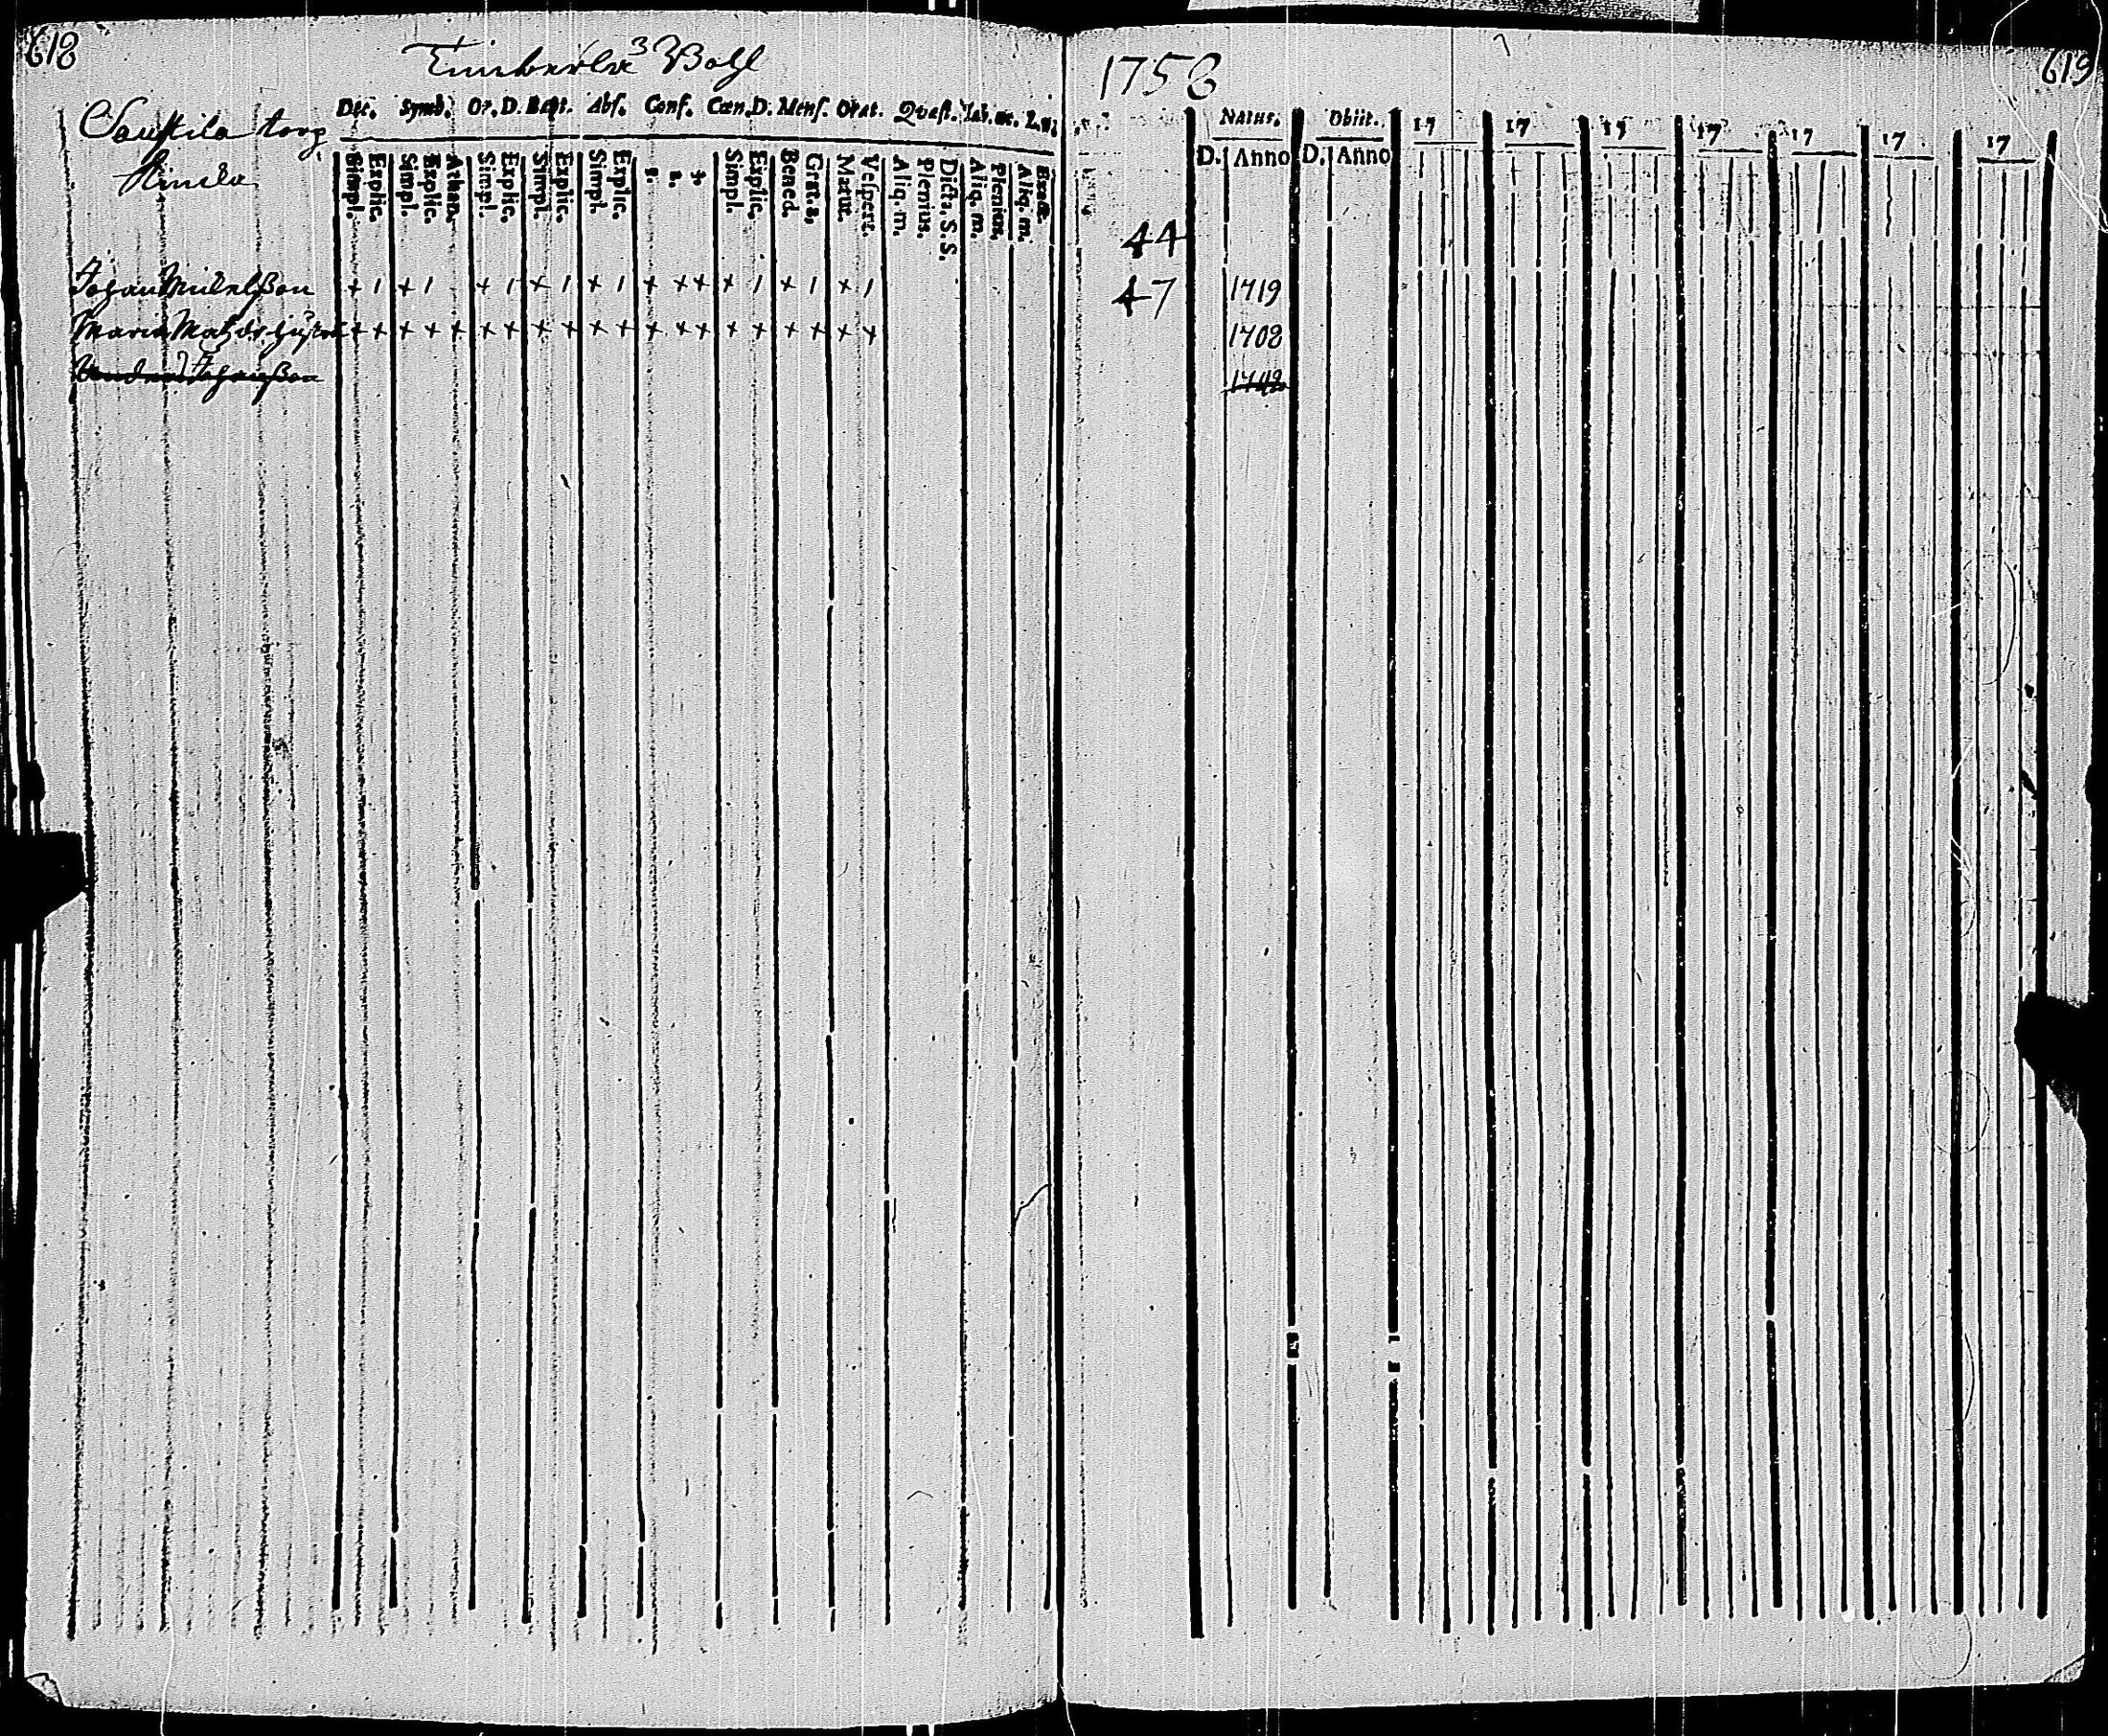 618
3 Bohl
torp
Dec. Symb. Or. D. Bapt. Abs. Conf. Cœn. D. Mens. Orat. Quæst.
Simpl. Explic. Simpl. Explic. Athan. Simpl. Explic. Simpl. Explic. Simpl. Explic. 1. 2. 3. Simpl. Explic. Bened. Grat. a. Matut. Vespert. Aliq. m. Plenius. Dicta. S. S. Aliq. m. Plenius. Aliq. m. Exacte.
Johan Michelßon + 1 + 1 + 1 + 1 + 1 + + + + 1 + 1 + 1
Maria Matzdr hustru + + + + + + + + + + + + + + + + + + + +
Johanßon
1758
619
Natus. Obiit. 17 17 17 17 17 17 17
D. Anno D. Anno
44
47 1719
1708
1742